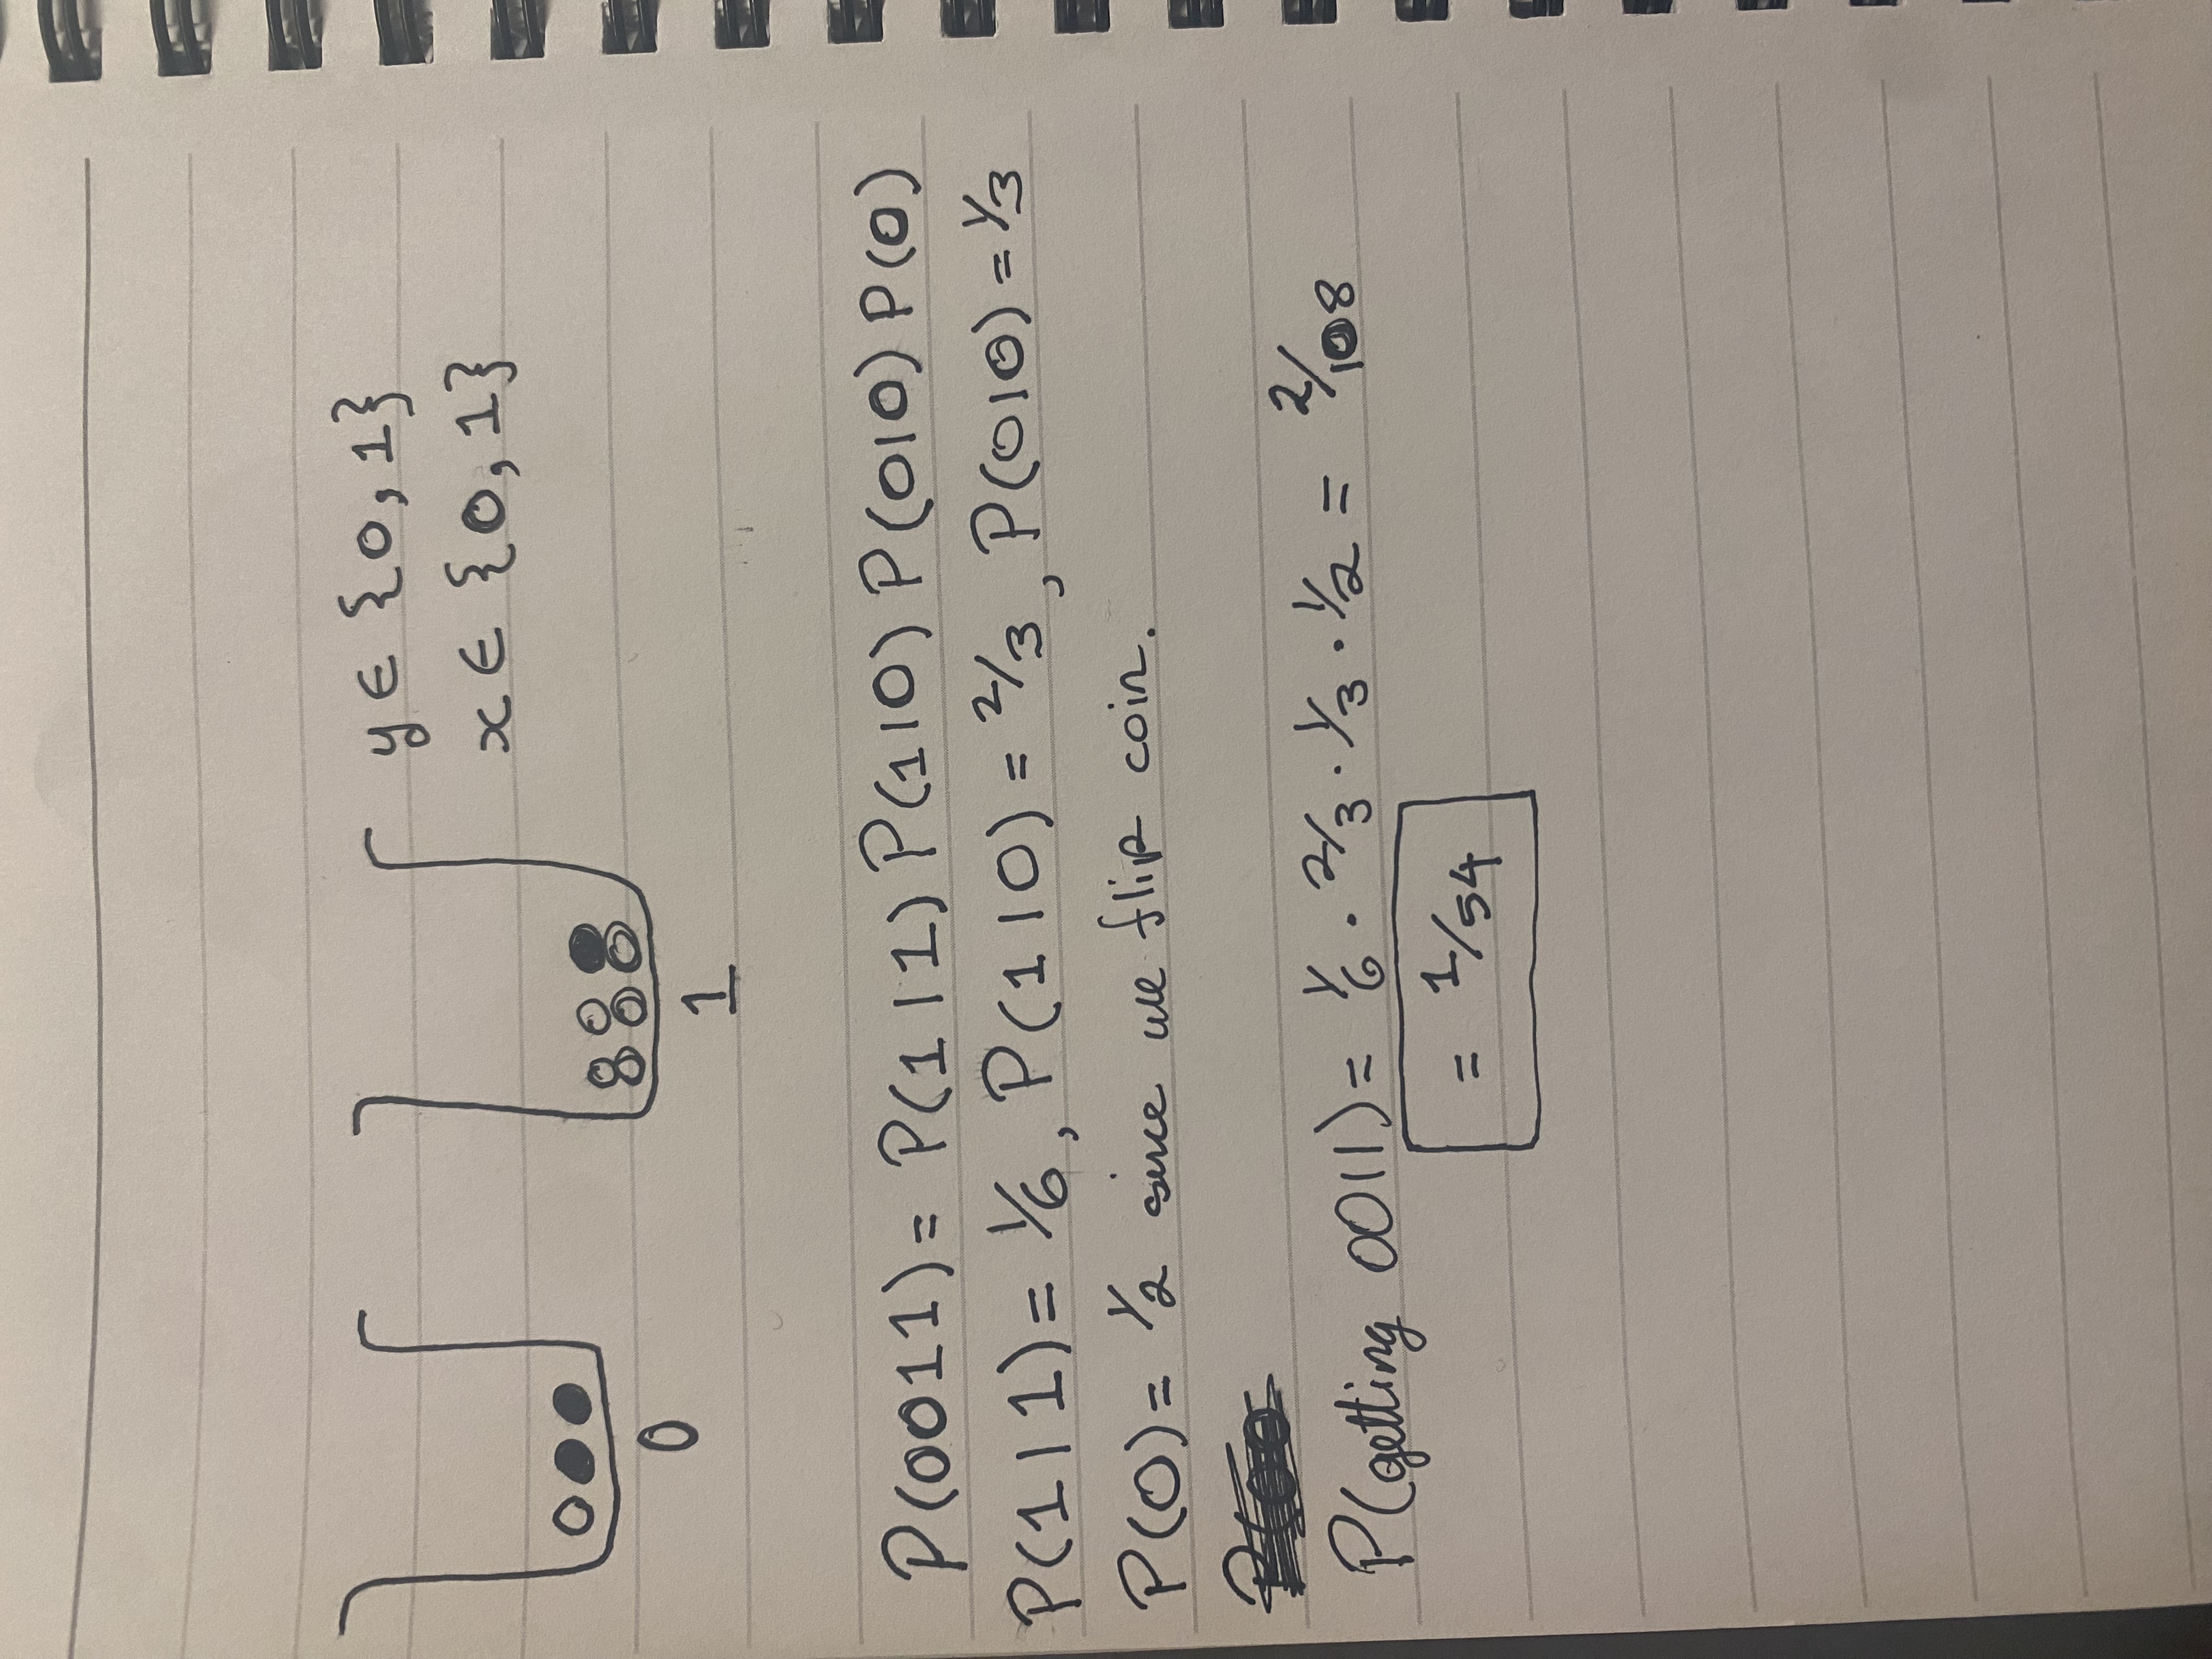 y ∈ {0, 1}
x ∈ {0, 1}
0
1
P(0011) = P(1|1) P(1|0) P(0|0) P(0)
P(1|1) = 1/6, P(1|0) = 2/3, P(0|0) = 1/3
P(0) = 1/2 since we flip coin.
P(getting 0011) = 1/6 · 2/3 · 1/3 · 1/2 = 2/108
= 1/54